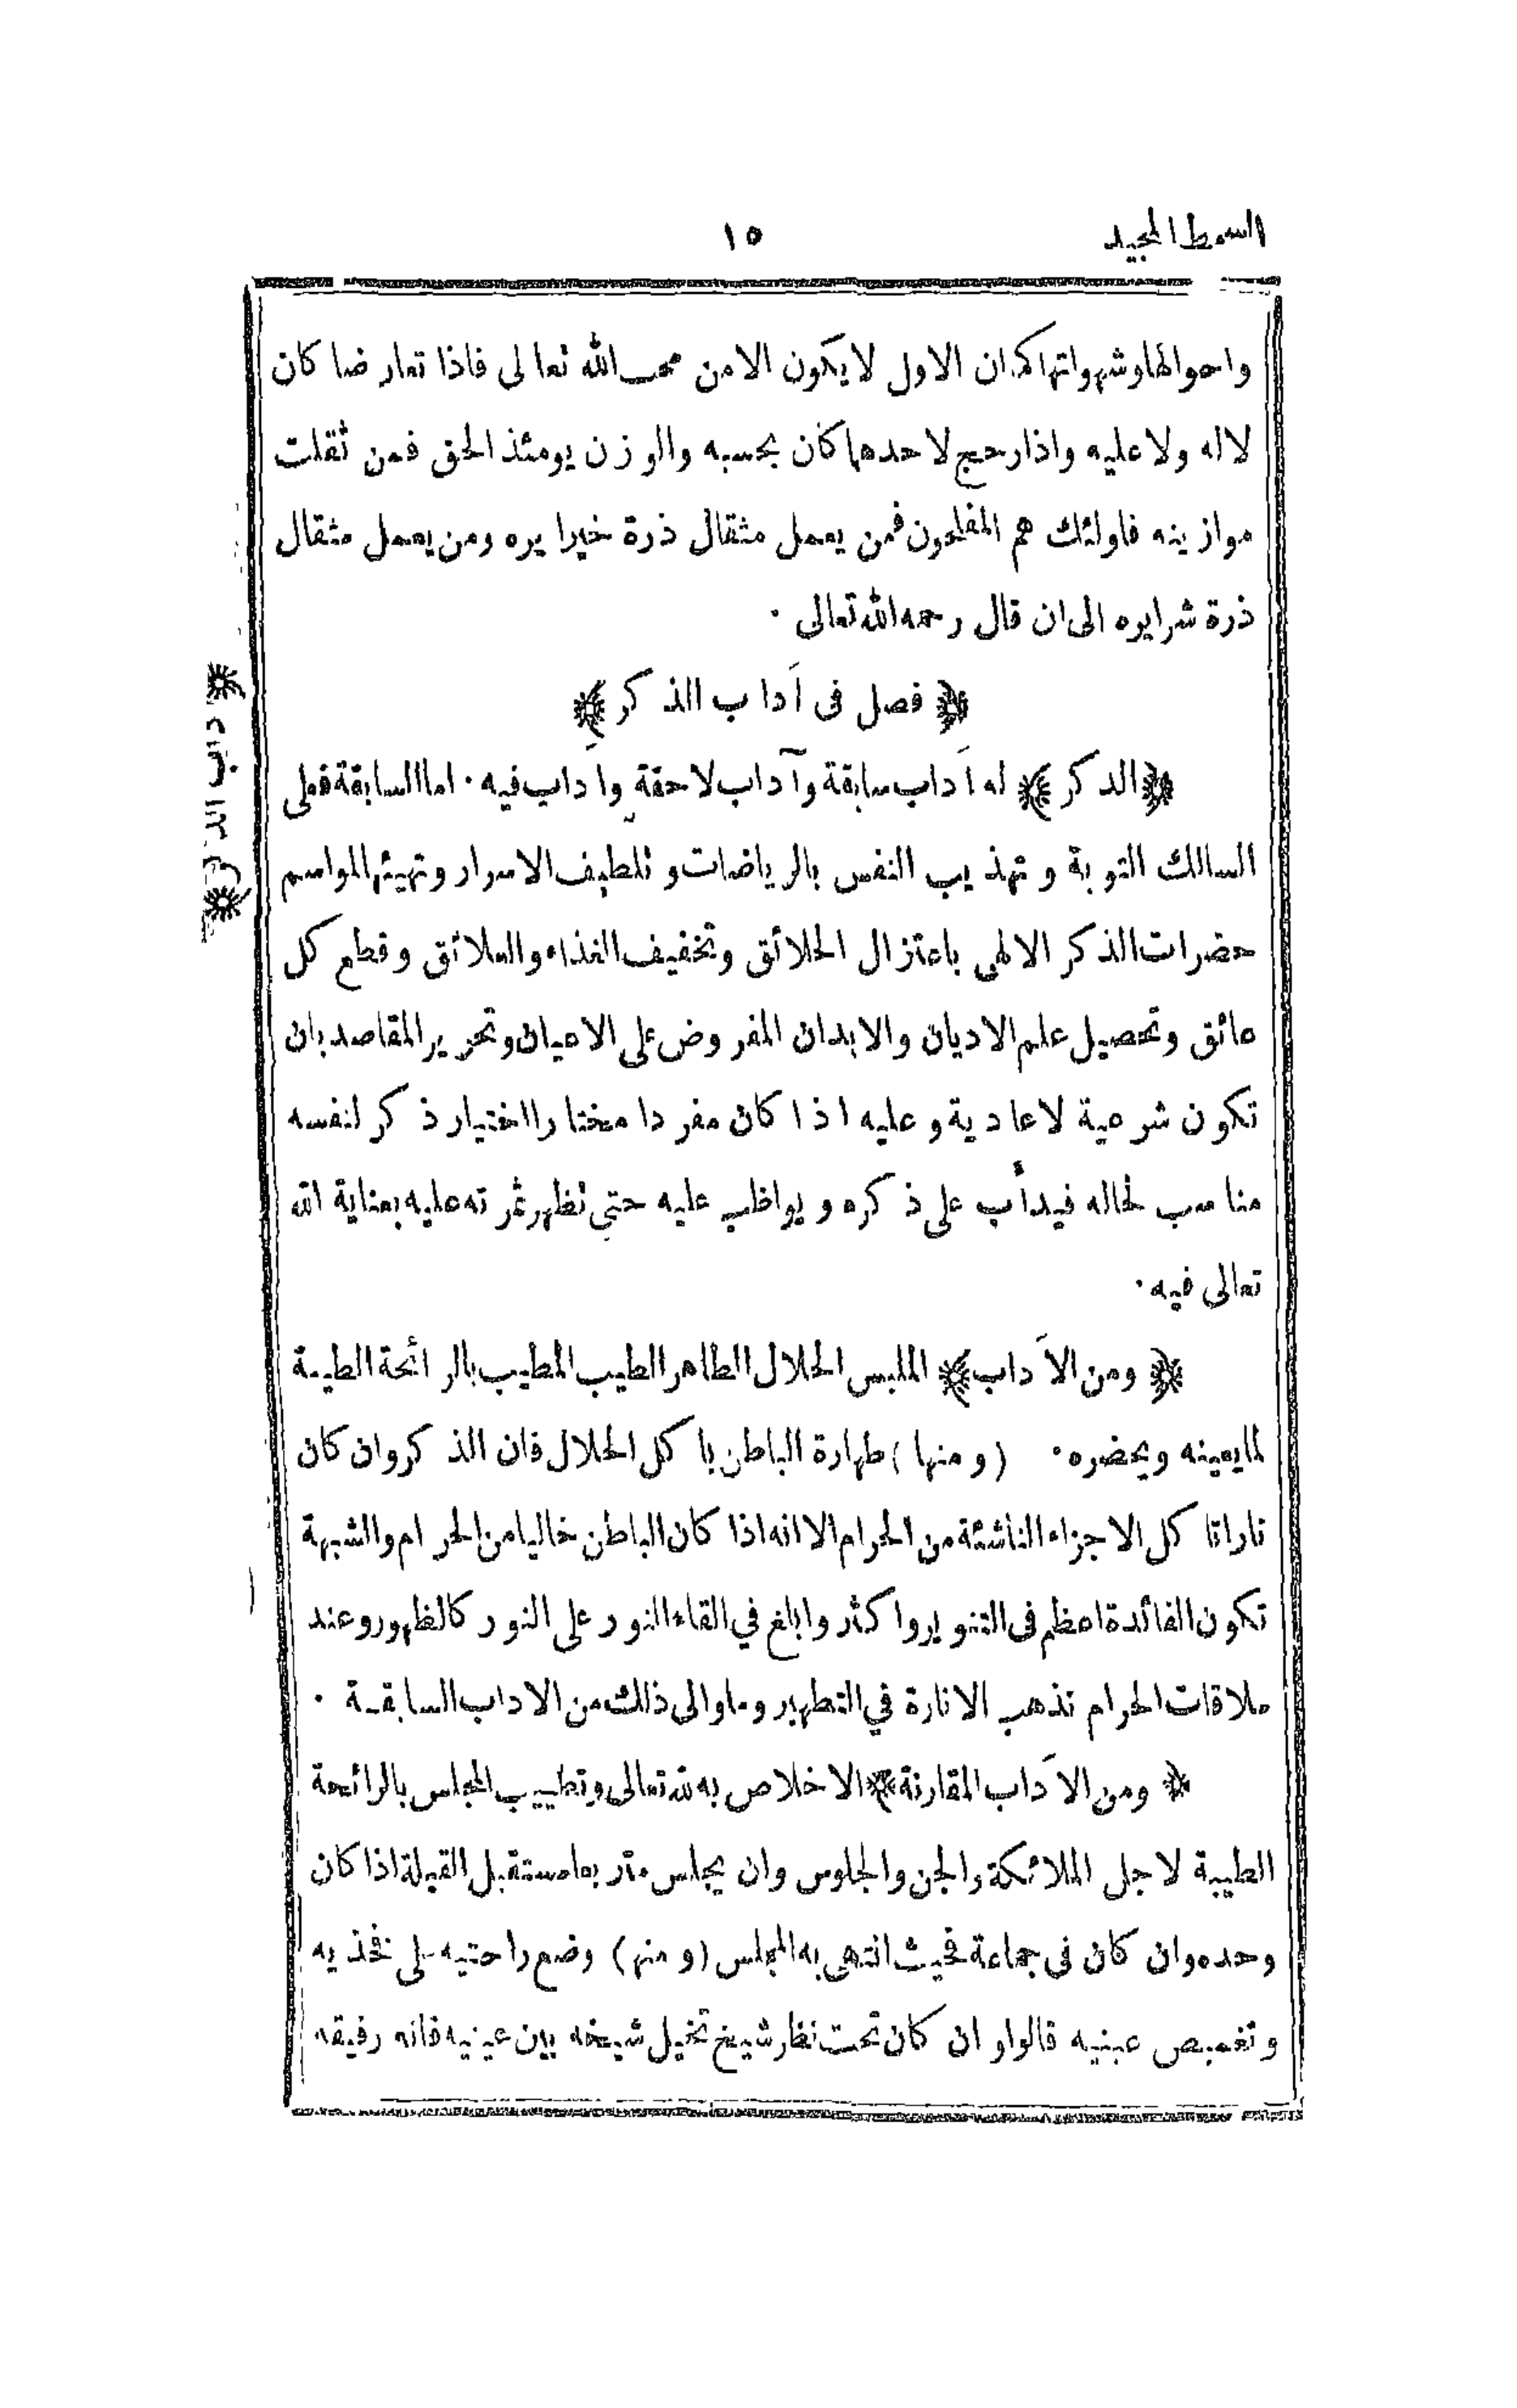 السمط المجيد
١٥
واحوالها وشهواتها كما ان الاول لا يكون الا من محب الله تعالى فاذا تعارضا كان
لاله ولا عليه واذا رجح لاحدهما كان بحسبه والوزن يومئذ الحق فمن ثقلت
موازينه فاولئك هم المفلحون فمن يعمل مثقال ذرة خيرا يره ومن يعمل مثقال
ذرة شرا يره الى ان قال رحمه الله تعالى ٠
﴿ فصل فى آداب الذكر ﴾
﴿ الذكر ﴾ له آداب سابقة وآداب لاحقة وآداب فيه ٠ اما السابقة فعلى
السالك التوبة وتهذيب النفس بالرياضات وتلطيف الاسرار وتهيئها لمواسم
حضرات الذكر الالهى باعتزال الخلائق وتخفيف الغذاء والعلائق وقطع كل
عائق وتحصيل علم الاديان والابدان المفروض على الاعيان وتحرير المقاصد بان
تكون شرعية لا عادية وعليه اذا كان مفردا مختارا اختيار ذكر لنفسه
مناسب لحاله فيدأب على ذكره ويواظب عليه حتى تظهر ثمرته عليه بعناية الله
تعالى فيه ٠
﴿ ومن الآداب ﴾ الملبس الحلال الطاهر الطيب المطيب بالرائحة الطيبة
لما يعينه ويحضره ٠ (ومنها) طهارة الباطن باكل الحلال فان الذكر وان كان
نارا تاكل الاجزاء الناشئة من الحرام الا انه اذا كان الباطن خاليا من الحرام والشبهة
تكون الفائدة اعظم فى التنوير واكثر وابلغ في القاء النور على النور كالظهور وعند
ملاقات الحرام تذهب الانارة في التطهير وما والى ذلك من الاداب السابقة ٠
﴿ ومن الآداب المقارنة ﴾ الاخلاص به لله تعالى وتطييب المجلس بالرائحة
الطيبة لاجل الملائكة والجن والجلوس وان يجلس متربعا مستقبل القبلة اذا كان
وحده وان كان فى جماعة فحيث انتهى به المجلس (ومنها) وضع راحتيه على فخذيه
وتغميض عينيه قالوا وان كان تحت نظر شيخ تخيل شيخه بين عينيه فانه رفيقه